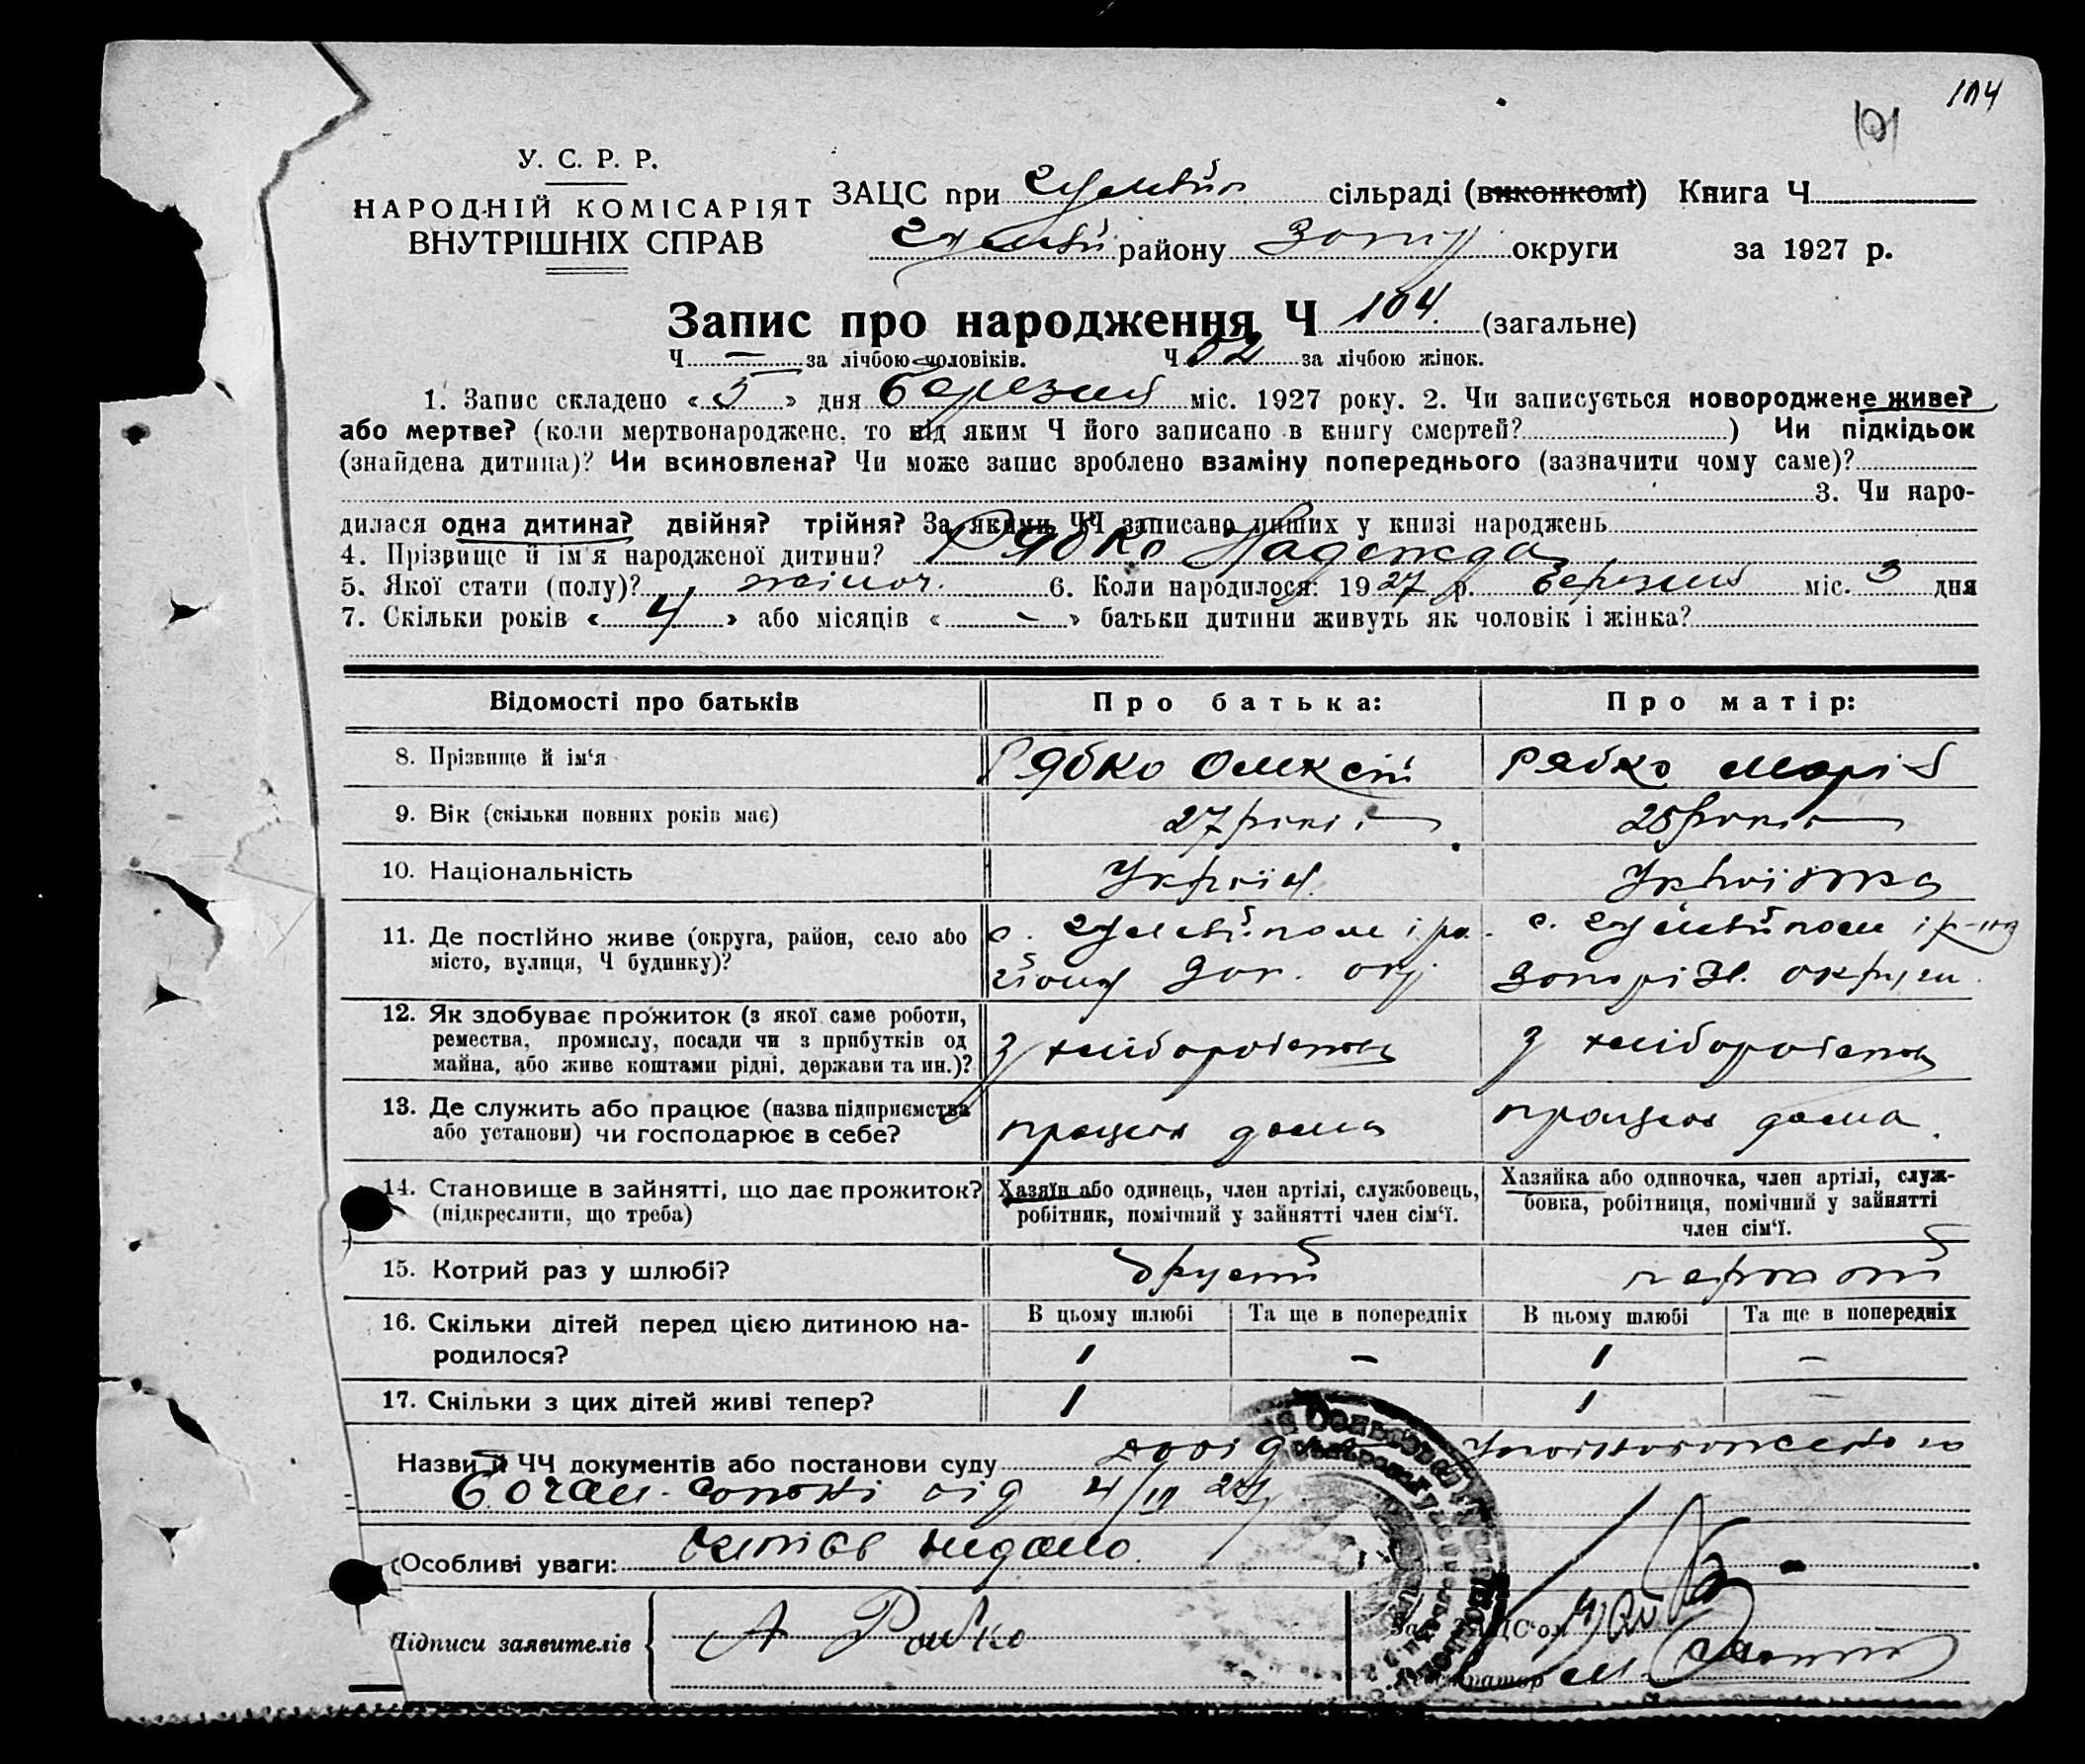 104
101
У. С. Р. Р.
НАРОДНІЙ КОМІСАРІЯТ
ВНУТРІШНІХ СПРАВ
ЗАЦС при Гуляйпіл сільраді (виконкомі) Книга Ч
Гуляй району Запор округи за 1927 р.
Запис про народження Ч 104. (загальне)
Ч — за лічбою чоловіків. Ч 52 за лічбою жінок.
1. Запис складено «5» дня березня міс. 1927 року. 2. Чи записується новороджене живе?
або мертве? (коли мертвонароджене, то під яким Ч його записано в книгу смертей? ) Чи підкідьок
(знайдена дитина)? Чи всиновлена? Чи може запис зроблено взаміну попереднього (зазначити чому саме)?
3. Чи наро-
дилася одна дитина? двійня? трійня? За якими ЧЧ записано инших у книзі народжень
4. Прізвище й ім'я народженої дитини? Рябко Надежда
5. Якої стати (полу)? жіноч. 6. Коли народилося: 1927 р. березня міс. 3 дня
7. Скільки років «4» або місяців «-» батьки дитини живуть як чоловік і жінка?
Відомості про батьків Про батька: Про матір:
8. Прізвище й ім'я Рябко Олексій Рябко Марія
9. Вік (скільки повних років має) 27 років 25 років
10. Національність Україн. Українка
11. Де постійно живе (округа, район, село або с. Гуляйполе і ра- с. Гуляйполе і р-ну
місто, вулиця, Ч будинку)? йону Зап. окр. Запоріж. округи
12. Як здобуває прожиток (з якої саме роботи,
ремества, промислу, посади чи з прибутків од
майна, або живе коштами рідні, держави та ин.)? З хліборобства З хліборобства
13. Де служить або працює (назва підприємства
або установи) чи господарює в себе? працює дома працює дома.
14. Становище в зайнятті, що дає прожиток? Хазяїн або одинець, член артілі, службовець, Хазяйка або одиночка, член артілі, служ-
(підкреслити, що треба) робітник, помічний у зайнятті член сім'ї. бовка, робітниця, помічний у зайнятті
член сім'ї.
15. Котрий раз у шлюбі? другий первый
16. Скільки дітей перед цією дитиною на- В цьому шлюбі Та ще в попередніх В цьому шлюбі Та ще в попередніх
родилося? 1 – 1 –
17. Скільки з цих дітей живі тепер? 1 1 –
Назви й ЧЧ документів або постанови суду
від 4/III 27
Особливі уваги: видано
Підписи заявителів А Рябко
Зав. ЗАЦС'ом
Реєстратор